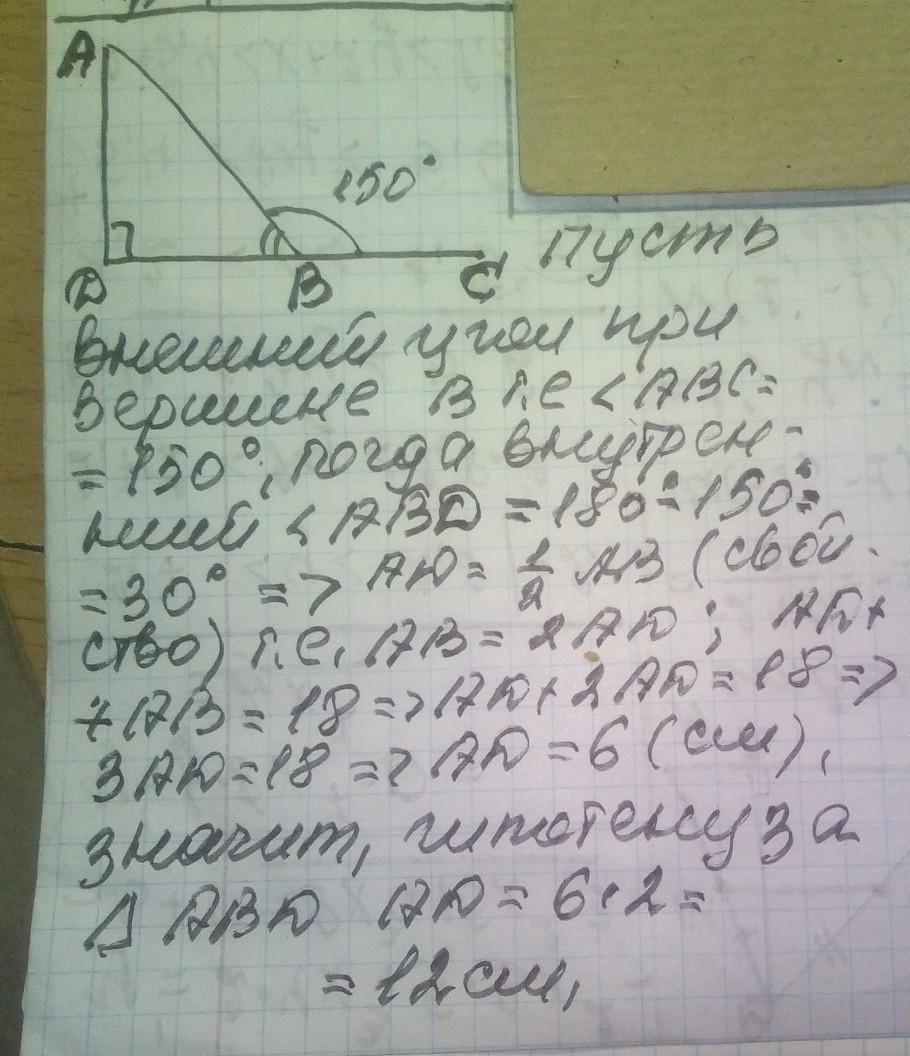 A
150°
D B C
Пусть
внешний угол при
вершине B т.е <ABC=
=150°, тогда внутрен-
ний <ABD =180°-150°=
=30° => AD= 1/2 AB (свой-
ство) т.е. AB=2AD; AD+
+AB=18=>AD+2AD=18=>
3AD=18=>AD=6(см),
значит, гипотенуза
Δ ABD AD=6·2=
=12см,